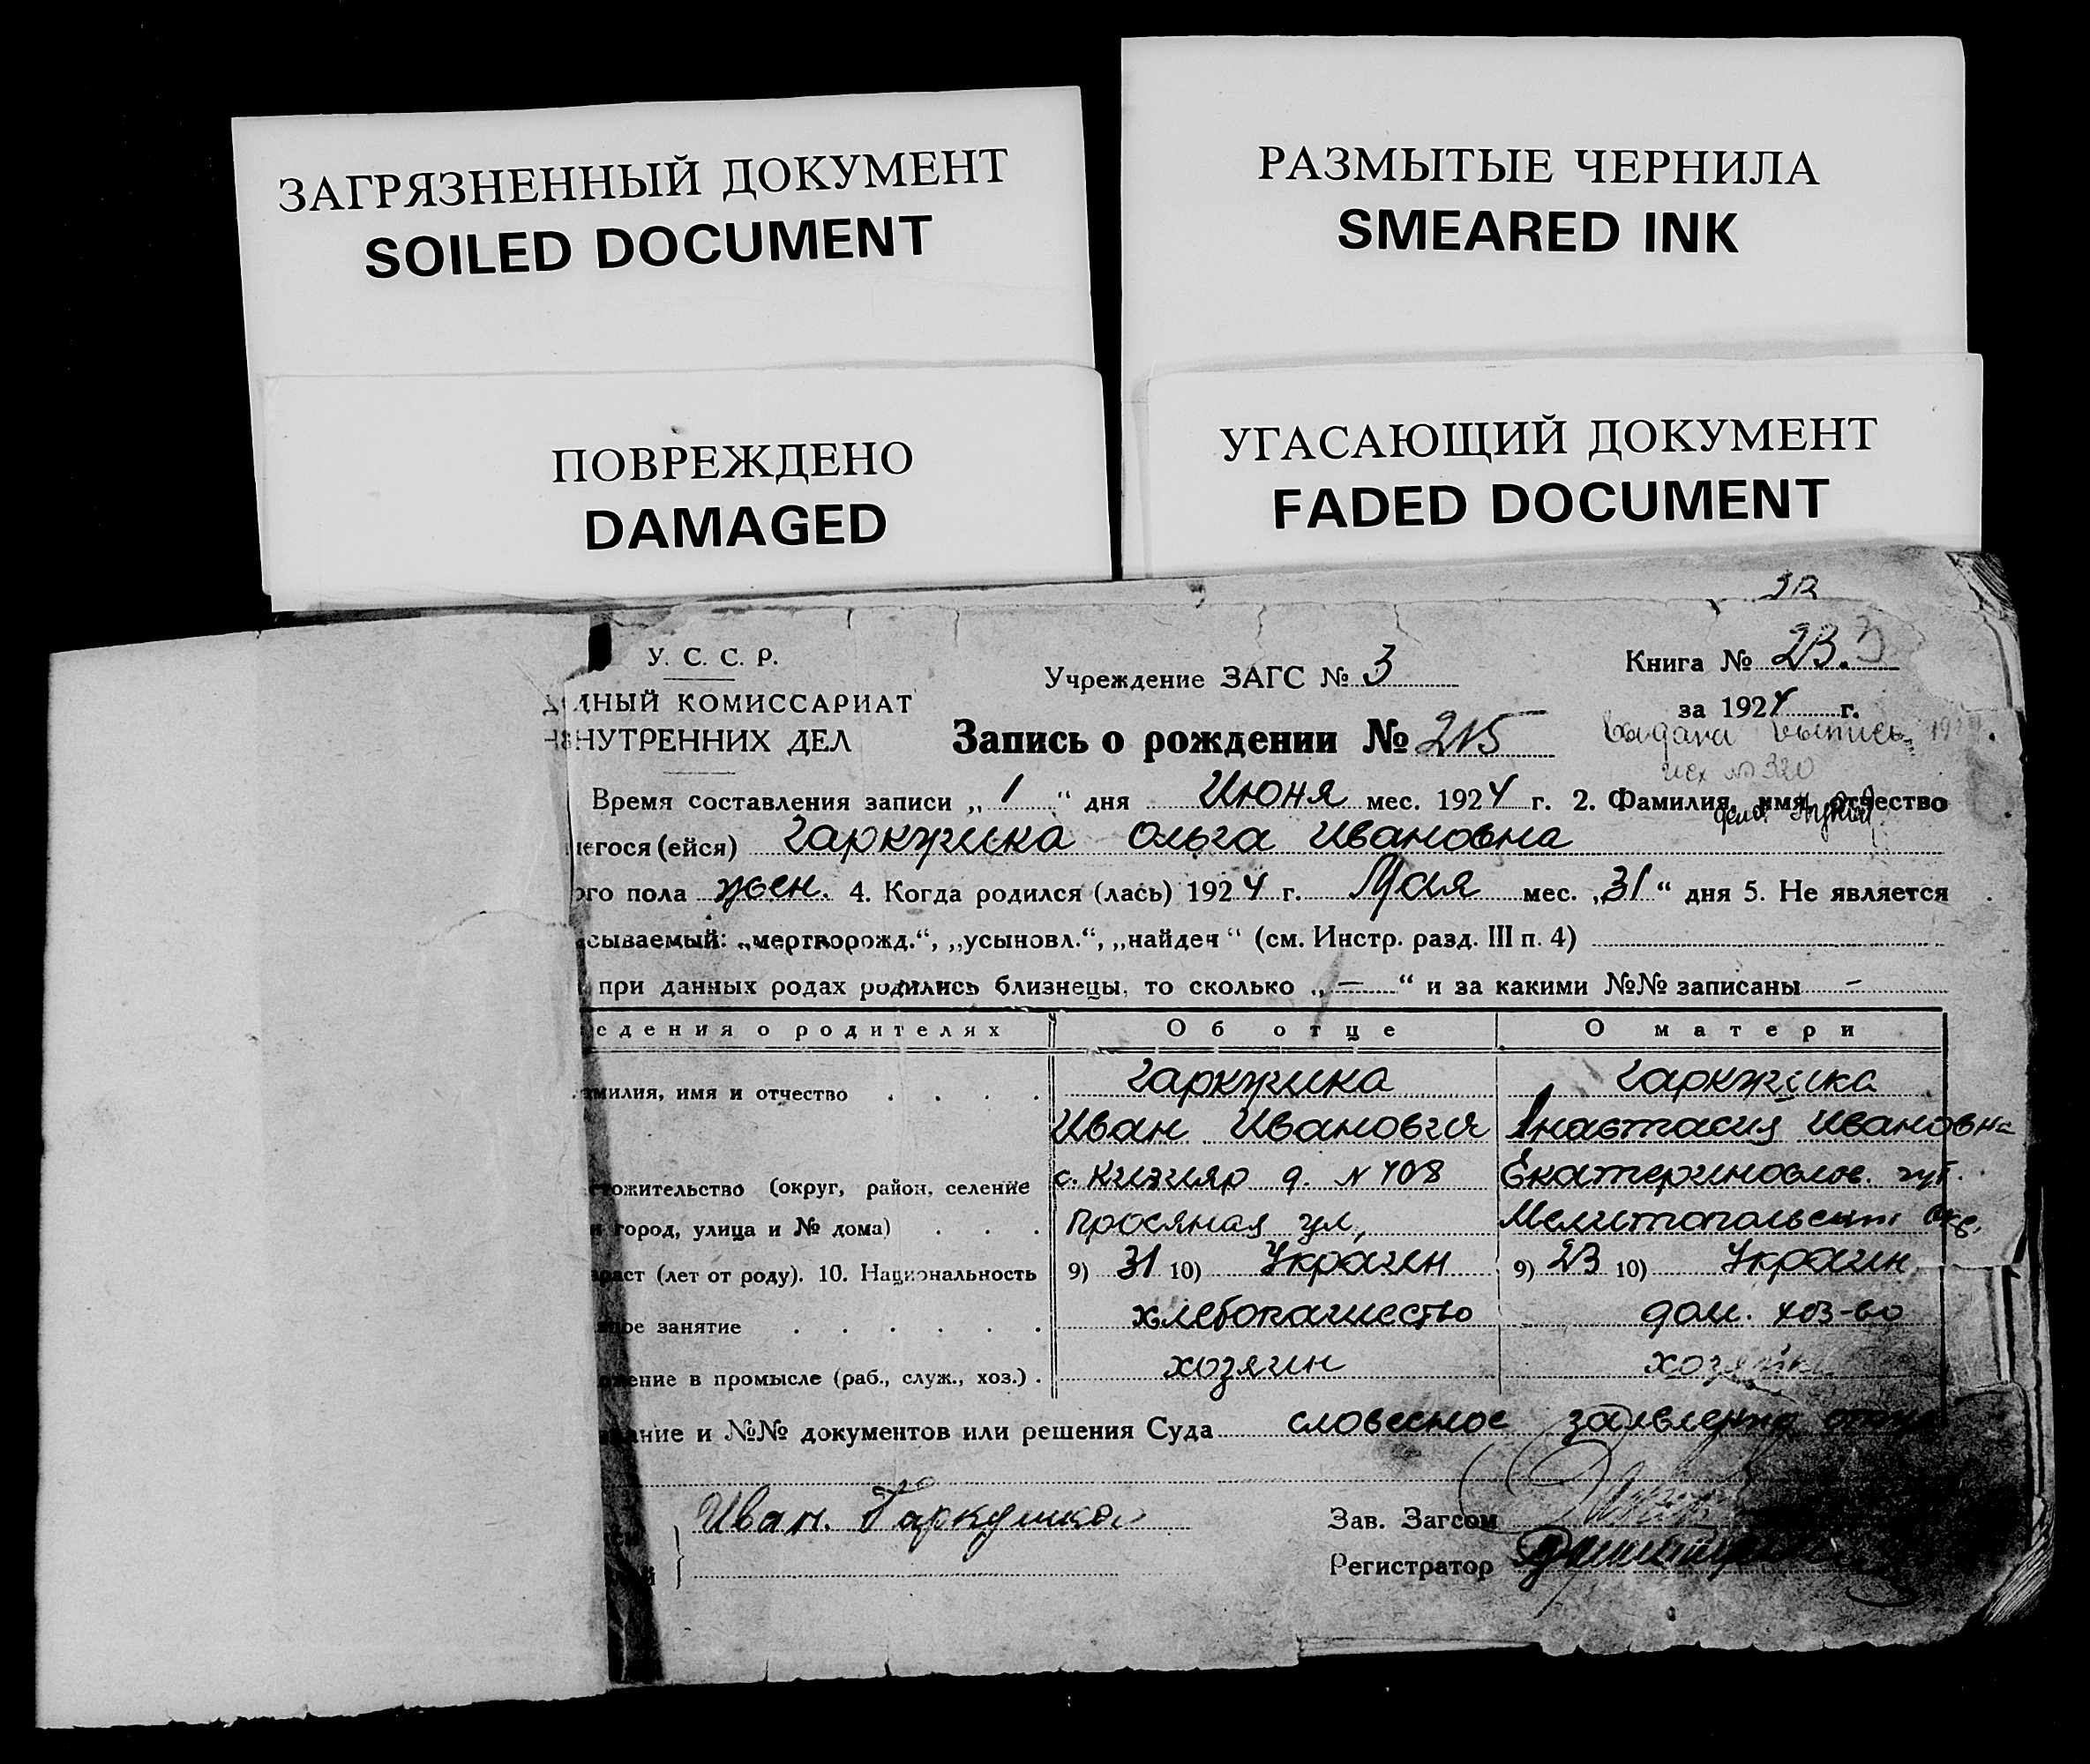 ЗАГРЯЗНЕННЫЙ ДОКУМЕНТ
SOILED DOCUMENT
РАЗМЫТЫЕ ЧЕРНИЛА
SMEARED INK
ПОВРЕЖДЕНО
DAMAGED
УГАСАЮЩИЙ ДОКУМЕНТ
FADED DOCUMENT
У. С. С. Р.
ДНЫЙ КОМИССАРИАТ
НУТРЕННИХ ДЕЛ
Учреждение ЗАГС № 3
Книга № 23.
за 1924 г.
Запись о рождении № 215
исх № 320
Время составления записи „ 1 “ дня Июня мес. 1924 г. 2. Фамилия, имя, отчество
егося (ейся) Гаркушка Ольга Ивановна
ого пола жен. 4. Когда родился (лась) 1924 г. Мая мес. „31“ дня 5. Не является
сываемый: „мертворожд.“, „усыновл.“, „найден“ (см. Инстр. разд. III п. 4)
при данных родах родились близнецы, то сколько „—“ и за какими №№ записаны —
едения о родителях Об отце О матери
милия, имя и отчество . . . . Гаркушка Гаркушка
Иван Иванович Анастасия Ивановна
тожительство (округ, район, селение с. Кизияр д. N 408 Екатеринослов. губ.
город, улица и № дома) . . . Просяная ул, Мелитопольский окр.
раст (лет от роду). 10. Национальность 9) 31 10) Украин 9) 23 10) Украин
ное занятие . . . . . . хлебопашество дом. хоз-во
жение в промысле (раб., служ., хоз.) . хозяин хозяйка
ание и №№ документов или решения Суда словесное заявление отца
Иван. Гаркушка
Зав. Загсом
Регистратор